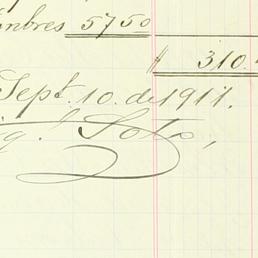 imbres 5750
$ 310.
Sept. 10. de 1911.
g. Soto,